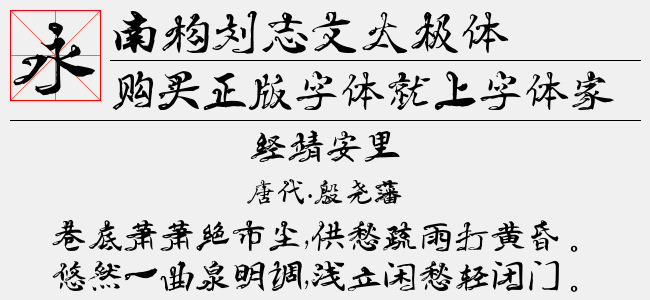 永
南构刘志文太极体
购买正版字体就上字体家
经靖安里
唐代.殷尧藩
巷底萧萧绝市尘,供愁疏雨打黄昏。
悠然一曲泉明调,浅立闲愁轻闭门。